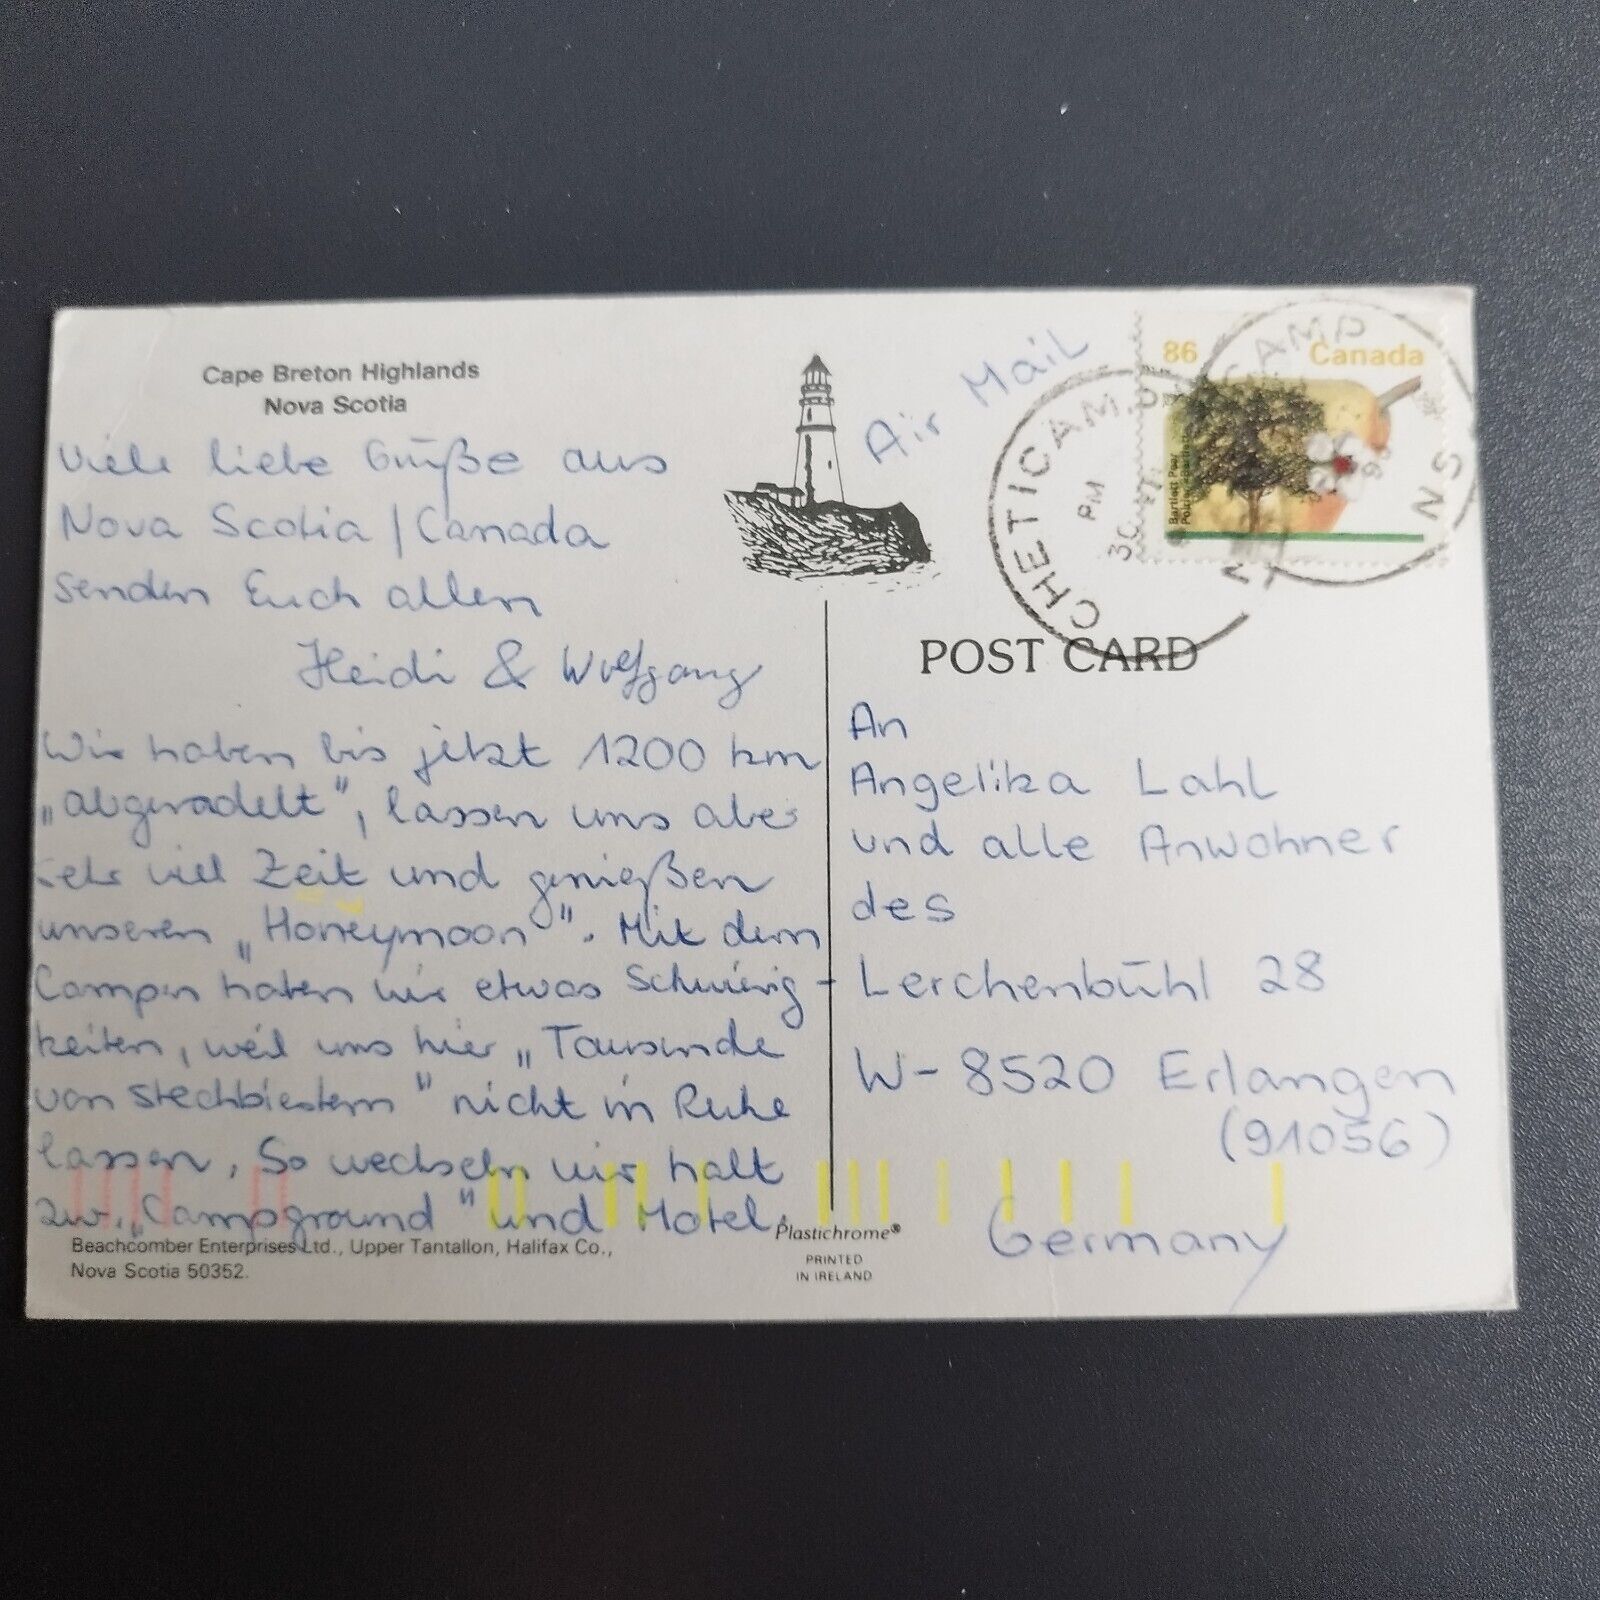 Cape Breton Highlands
Nova Scotia
Viele liebe Grüße aus
Nova Scotia / Canada
senden Euch allen
Heidi & Wolfgang
Wir haben bis jetzt 1200 km
„abgeradelt", lassen uns aber
sehr viel Zeit und genießen
unseren „Honeymoon". Mit dem
Campen haben wir etwas Schwierig-
keiten, weil uns hier „Tausende
von Stechbiestern" nicht in Ruhe
lassen. So wechseln wir halt
zw. „Campground" und Motel.
Beachcomber Enterprises Ltd., Upper Tantallon, Halifax Co.,
Nova Scotia 50352.
Plastichrome®
PRINTED
IN IRELAND
Air Mail
86 Canada
Bartlett Pear
CHETICAMP
PM
30
CAMP
NS
POST CARD
An
Angelika Lahl
und alle Anwohner
des
Lerchenbühl 28
W-8520 Erlangen
(91056)
Germany